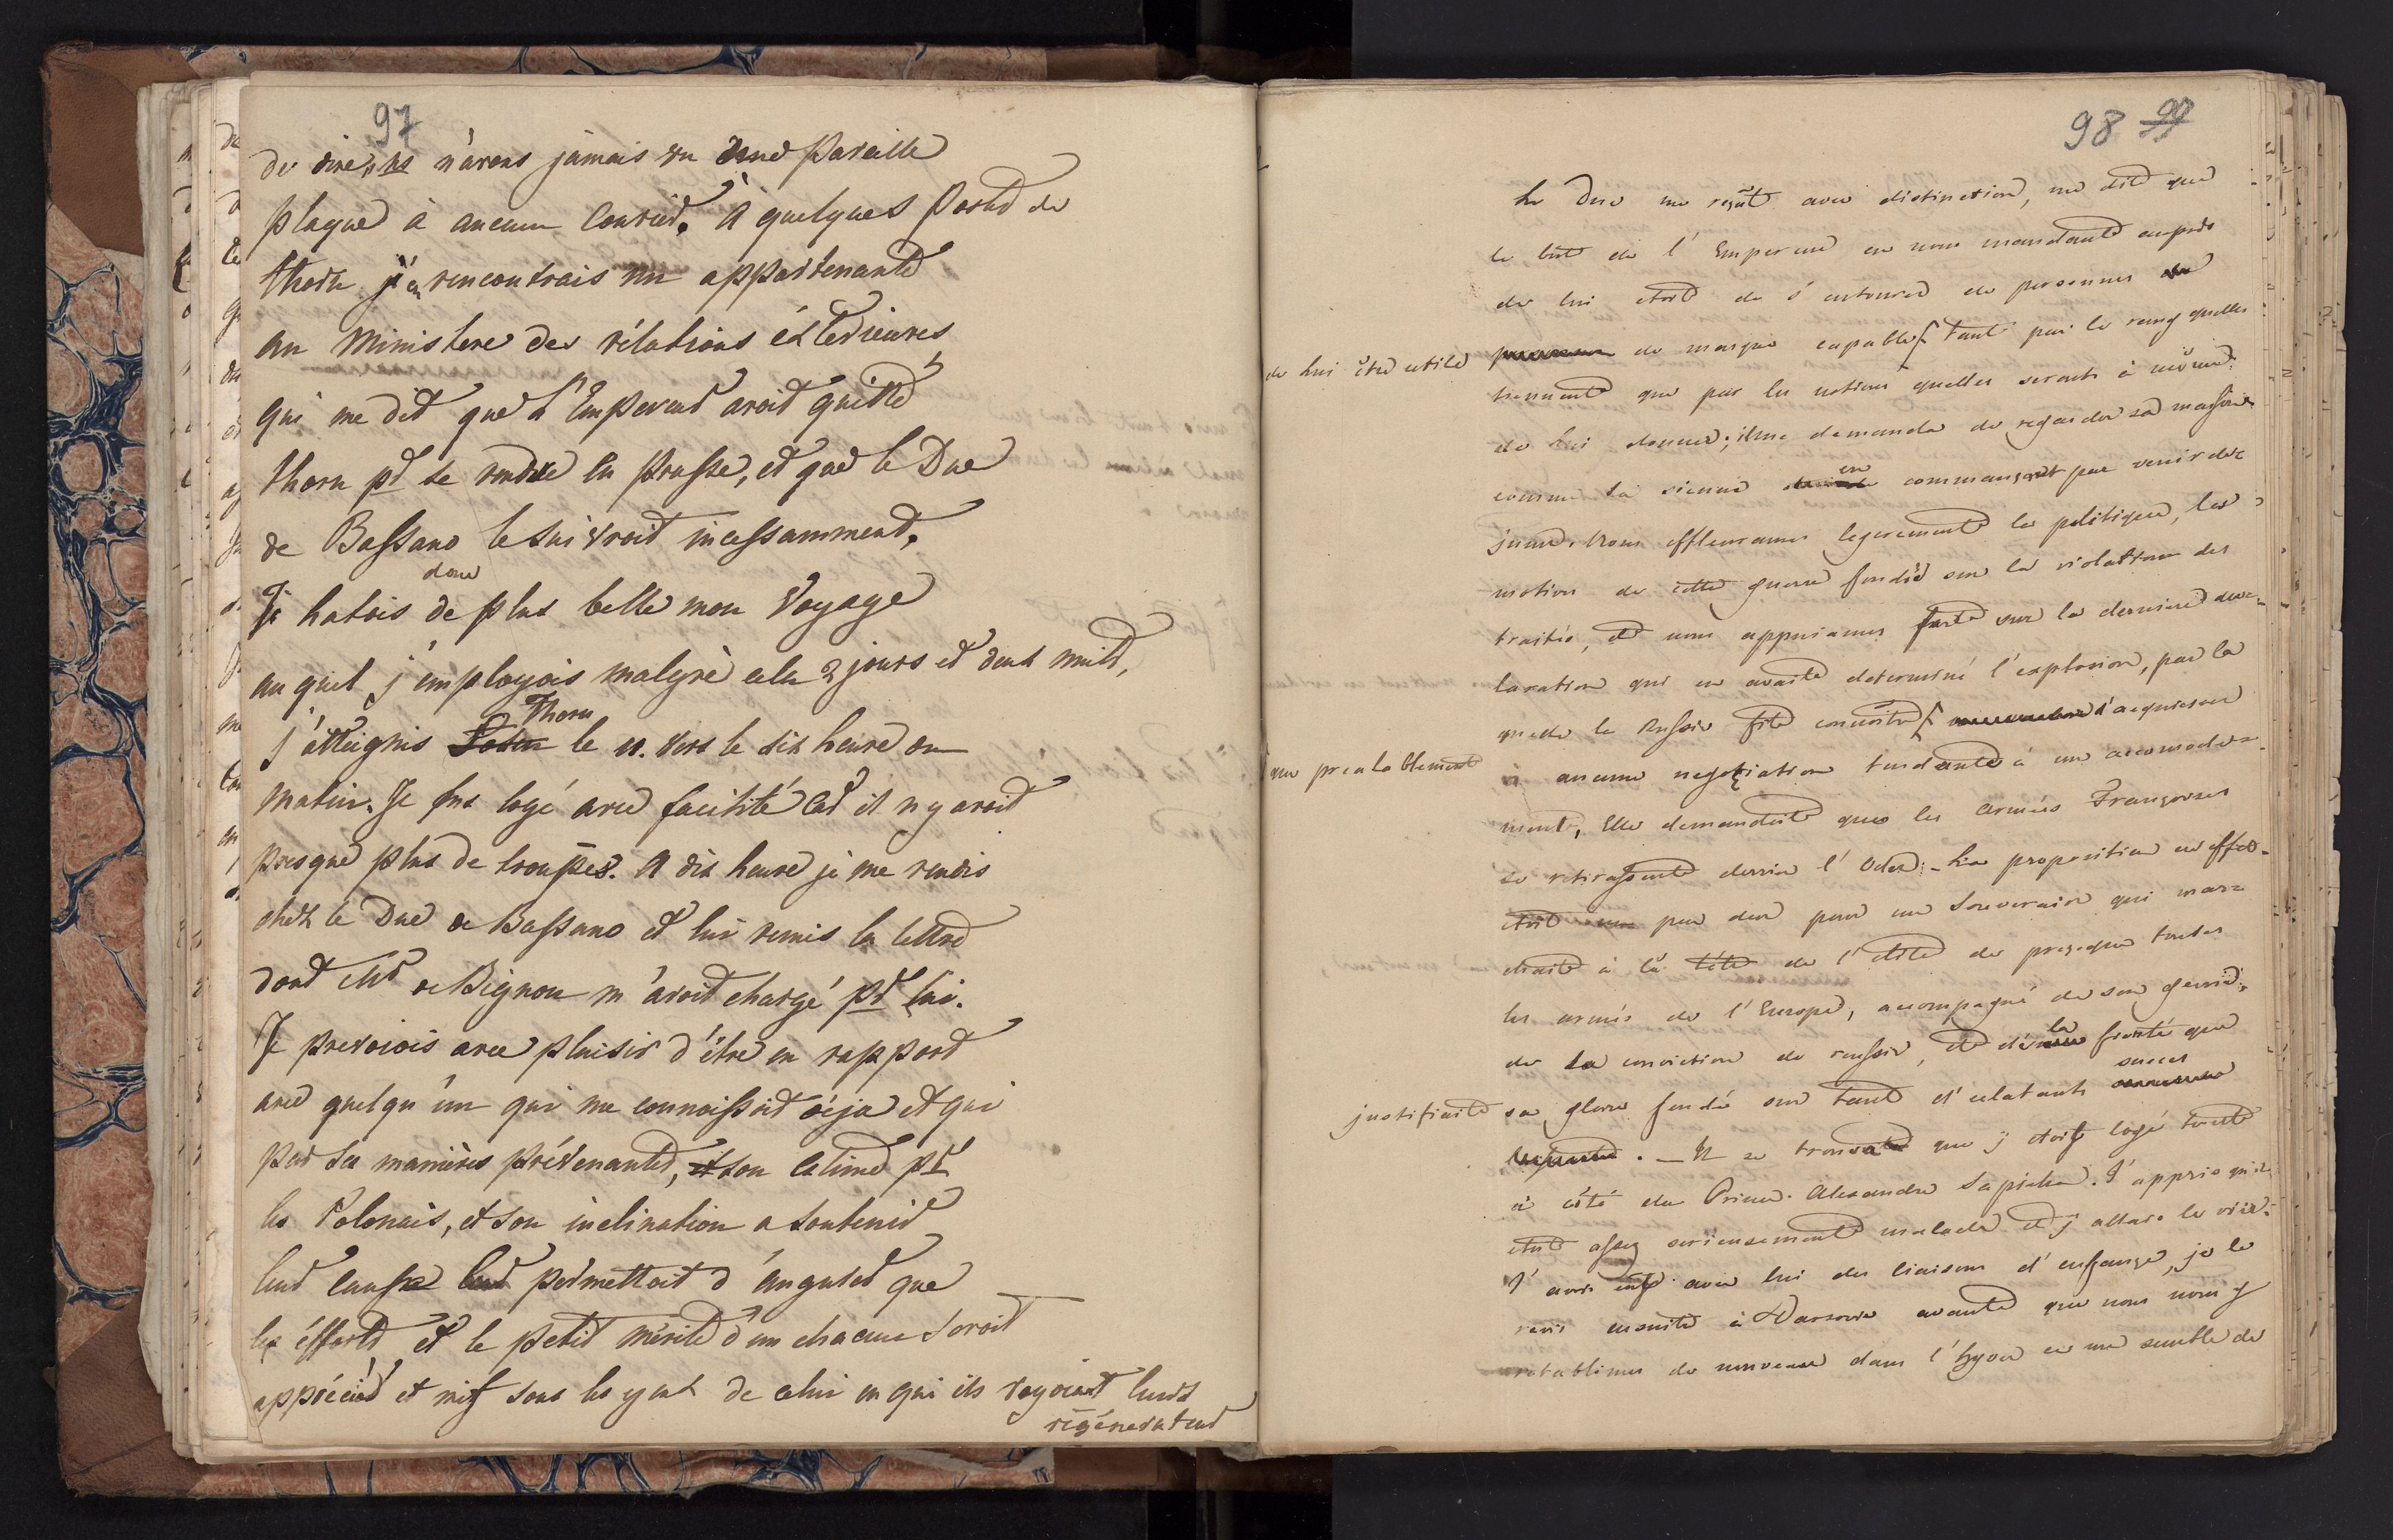 97
de dire, ns n'avons jamais vu d'une pareille
plaque à aucun Courier. A quelques postes de
thorn j'en rencontrais un appartenant
au Ministere des rélations éxterieures
qui me dit que l'Empereur avoit quitté
thorn pr se rendre en Prusse, et que le Duc
de Bassano le suivroit incessamment.
Je hatois donc de plus belle mon Voyage
auquel j'employois malgrè cela 2 jours et deux nuits,
j'atteignis Thorn le 11. vers le dix heure du
matin. Je fus logé avec facilité car il n'y avoit
presque plus de troupes. A dix heure je me rendis
chez le Duc de Bassano et lui remis la lettre
dont Mr de Bignon m'avoit chargé pr lui.
Je prevoiois avec plaisir d'être en rapport
avec quelqu'un qui me connoissoit déja et qui
par ses manières prévenantes, et son estime pr
les Polonais, et son inclination a soutenir
leur cause permettoit d'augurer que
les éfforts et le petit mérite d'un chacun seroit
apprécié et mis sous les yeux de celui en qui ils voyoient leurs
régénerateur
98 99
Le Duc me reçut avec distinction, me dit que
le but de l'Empereur en nous mandant auprès
de lui etoit de s'entourer de personnes
de marque capables de lui être utile tant par le rang quelles
tiennent que par les notions quelles seront à même
de lui donner; il me demanda de regarder sa maison
comme la sienne en commançant par venir de-
juner. Nous effleurames legerement la politique, les
motives de cette guerre fondée sur la violation des
traités, et nous appuiames sur la derniere dec-
laration qui en avait determiné l'explosion, par la
quelle la Russie fit connoitre que prealablement d'acquiescer
à aucune negotiation tendante à un accomode-
ment, Elle demandoit que les armées Françoises
se retirassent derrier l'Oder. - La proposition en effet
etoit un peu dur pour un Souverain qui mar-
chait à la tête de l'élite de presque toutes
les armés de l'Europe, accompagné de son genie,
de la conviction de reussir, et de la fierté que
justifiait sa gloire fondé sur tant d'eclatants succes
. - Il se trouvait que j'etois logé tout
à côté du Prince Alexandre Sapieha. J'appris qu'il
etoit assez serieusement malade et j'allais le voir.
J'avois eus avec lui des liaisons d'enfance, je le
revis ensuite à Varsovie avant que nous nous y
retablimes de nouveau dans l'hyver ce me semble de